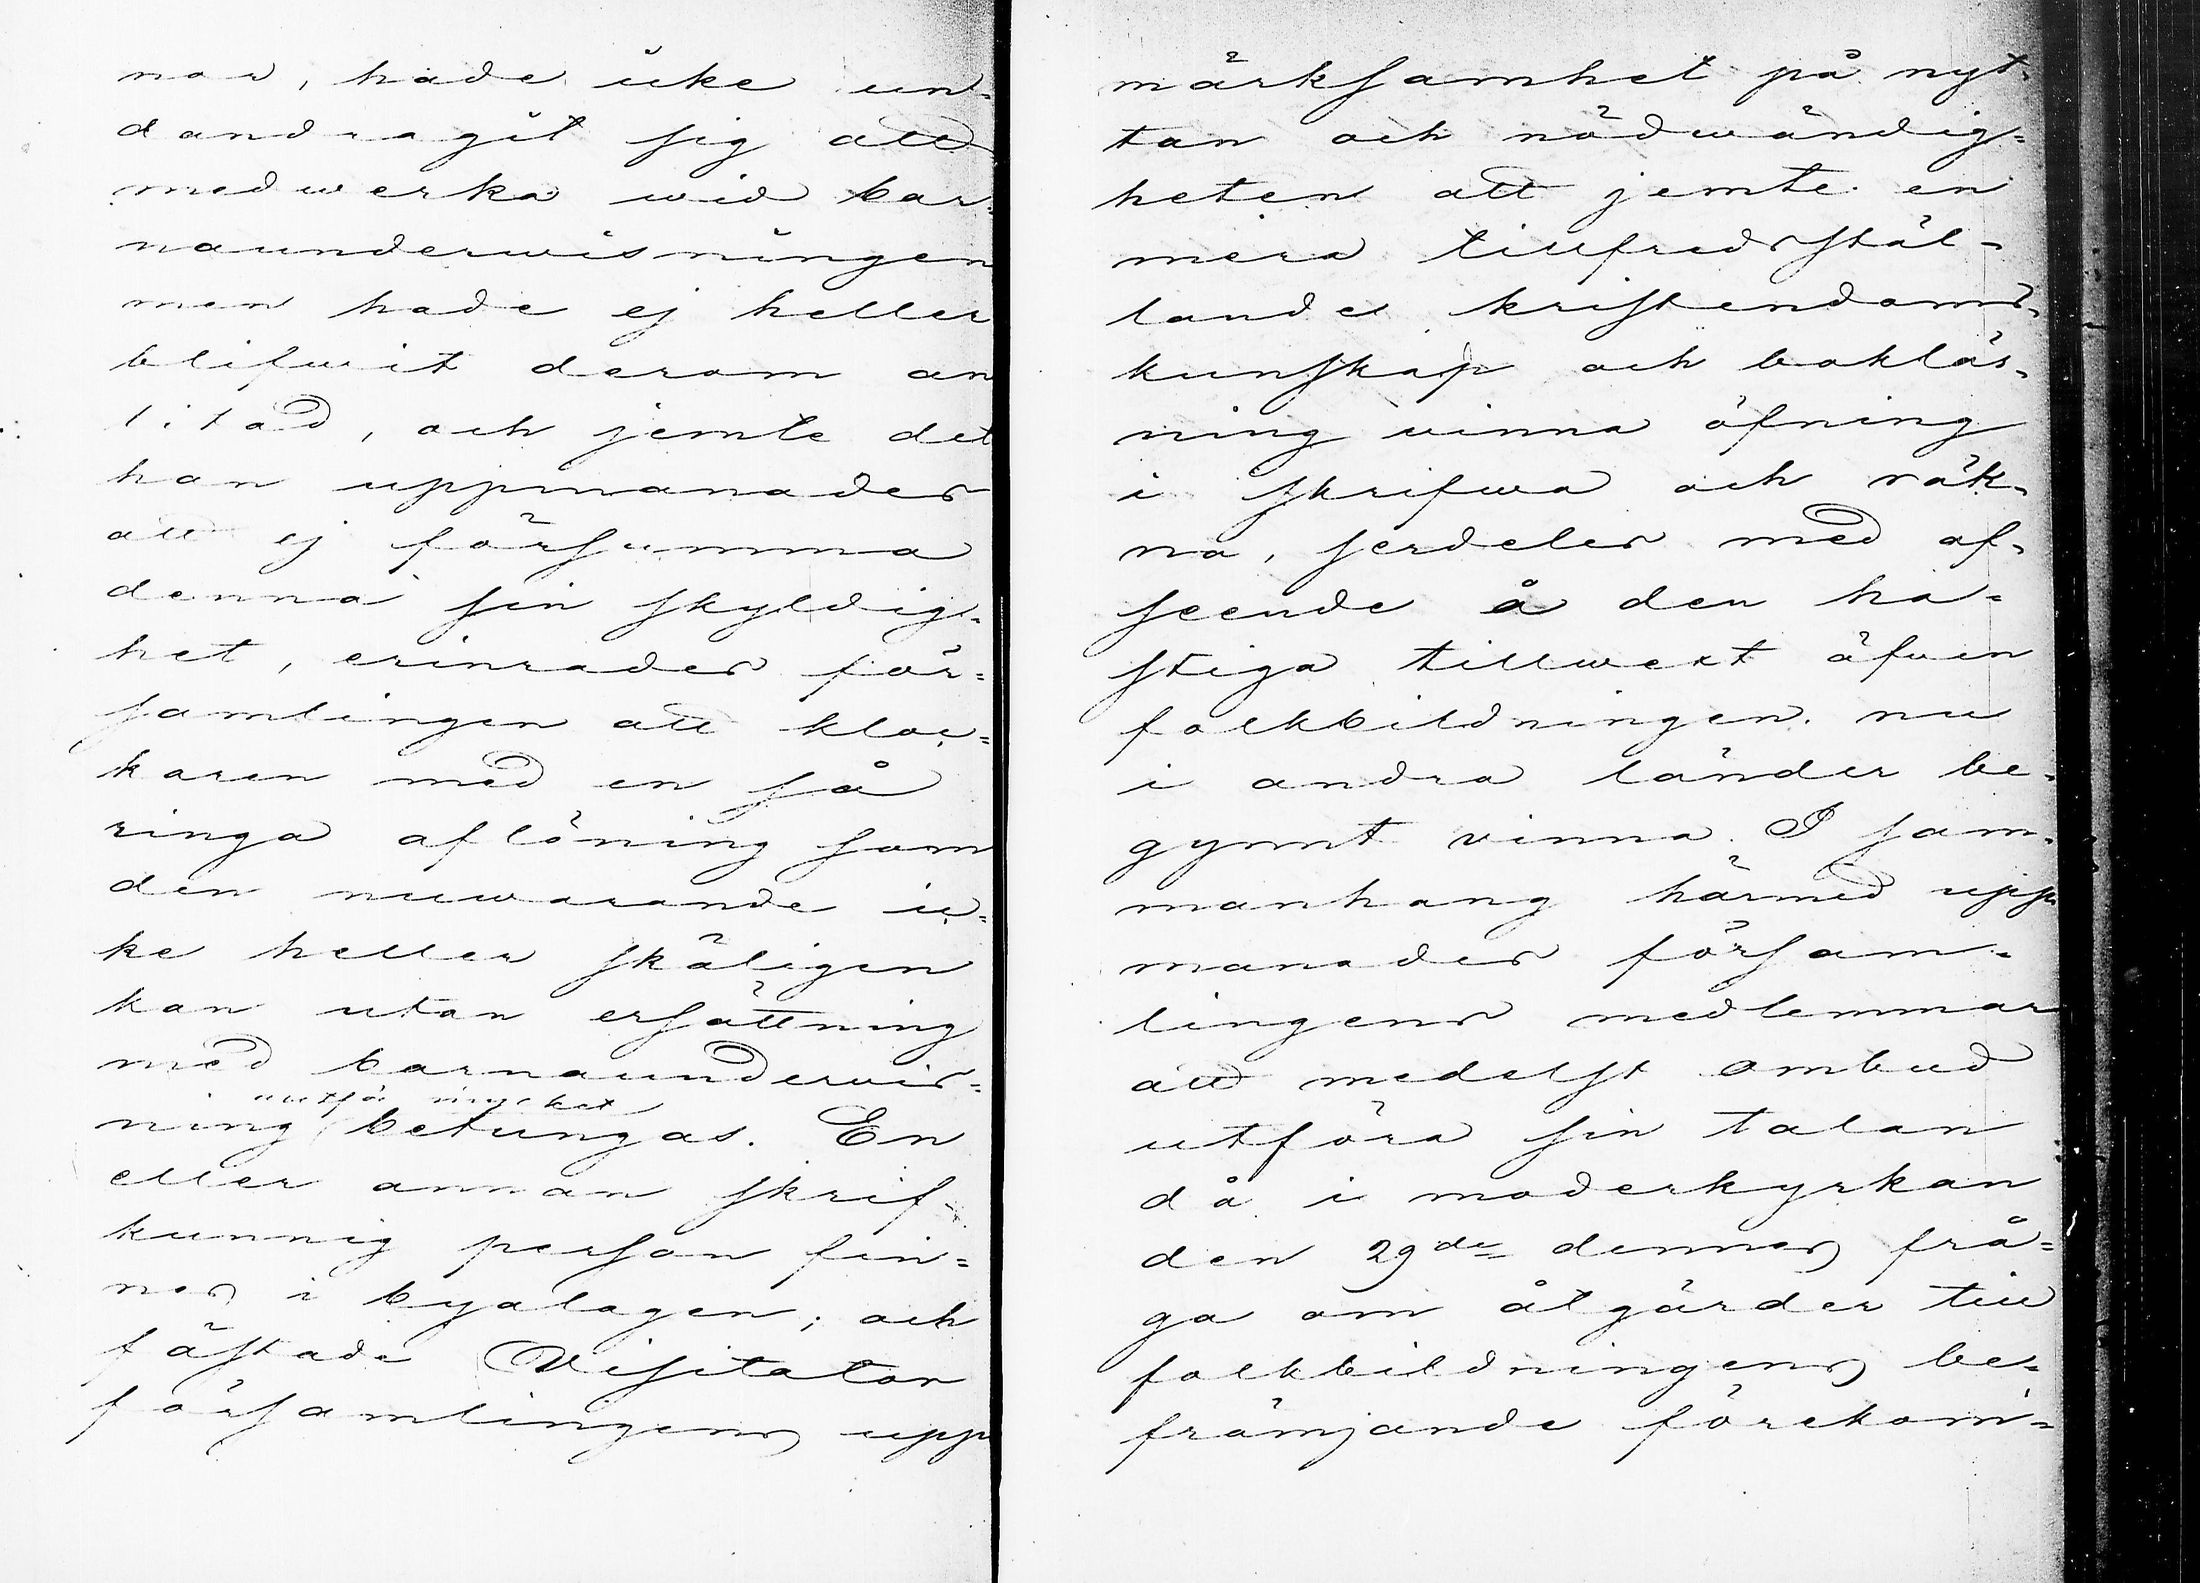 nar, hade icke un=
dandragit sig att
medwerka wid bar=
naunderwisningen
men hade ej heller
blifwit derom an
litad, och jemte det
han uppmanades
att ej försumma
denna sin skyldig=
het, erinrades för=
samlingen att kloc=
karen med en så
ringa aflöning som
den nuwarande ic=
ke heller skäligen
kan utan ersättning
med barnaundervis=
mycket
ning betungas. En
eller annan skrif
kunnig person fin=
nes i byalagen; och
fästade Visitator
församlingens upp
märksamhet på nyt=
tan och nödwändig=
heten att jemte en
mera tillfredsstäl=
lande kristendoms=
kunskap och bokläs=
ning vinna öfning
i skrifwa och räk=
na, serdeles med af=
seende å den ha=
stiga tillwext äfven
folkbildningen nu
i andra länder be=
gynnt vinna. I sam=
manhang härmed upp
manades försam=
lingens medlemmar
att medelst ombud
utföra sin talan
då i moderkyrkan
den 29de dennes frå=
ga om åtgärder till
folkbildningens be=
främjande förekom=